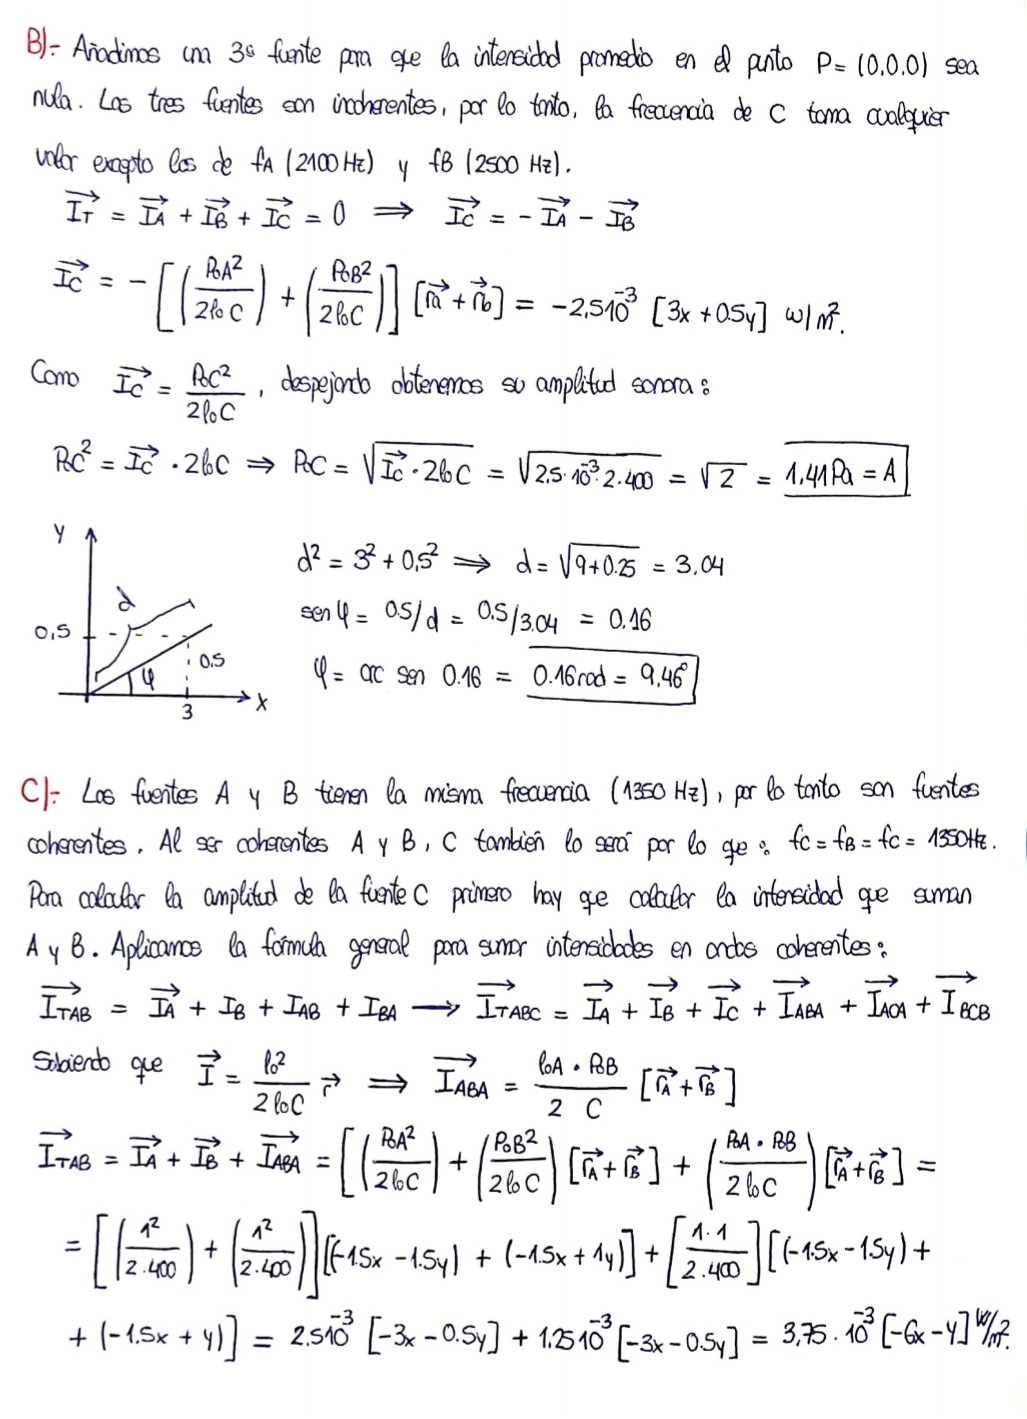 B).- Añadimos una 3ª fuente para que la intensidad promedio en el punto P= (0,0,0) sea
nula. Las tres fuentes son incoherentes, por lo tanto, la frecuencia de C toma cualquier
valor excepto los de fA (2100 Hz) y fB (2500 Hz).
IT = IA + IB + IC = 0 ⟹ IC = - IA - IB
IC = - [(P0A²/2ρ0C) + (P0B²/2ρ0C)] [ra + rb] = -2,5·10⁻³ [3x + 0.5y] w/m².
Como IC = P0C²/2ρ0C , despejando obtenemos su amplitud sonora:
P0C² = IC · 2ρ0C ⟹ P0C = √(IC · 2ρ0C) = √(2,5·10⁻³·2·400) = √2 = 1,41 Pa = A
Y
d
0,5
0.5
φ
3
X
d² = 3² + 0,5² ⟹ d = √(9+0.25) = 3.04
sen φ = 0.5/d = 0.5/3.04 = 0.16
φ = arc sen 0.16 = 0.16 rad = 9,46°
C).- Las fuentes A y B tienen la misma frecuencia (1350 Hz), por lo tanto son fuentes
coherentes. Al ser coherentes A y B, C también lo será por lo que: fC = fB = fC = 1350Hz.
Para calcular la amplitud de la fuente C primero hay que calcular la intensidad que suman
A y B. Aplicamos la fórmula general para sumar intensidades en ondas coherentes:
ITAB = IA + IB + IAB + IBA ⟶ ITABC = IA + IB + IC + IABA + IACA + IBCB
Sabiendo que I = P0²/2ρ0C r ⟹ IABA = P0A · P0B/2 C [rA + rB]
ITAB = IA + IB + IABA = [(P0A²/2ρ0C) + (P0B²/2ρ0C)] [rA + rB] + (P0A · P0B/2ρ0C) [rA + rB] =
= [(1²/2·400) + (1²/2·400)] [(-1.5x - 1.5y) + (-1.5x + 1y)] + [1·1/2·400] [(-1.5x - 1.5y) +
+ (-1.5x + y)] = 2.5·10⁻³ [-3x - 0.5y] + 1.25·10⁻³ [-3x - 0.5y] = 3,75·10⁻³ [-6x - y] W/m².